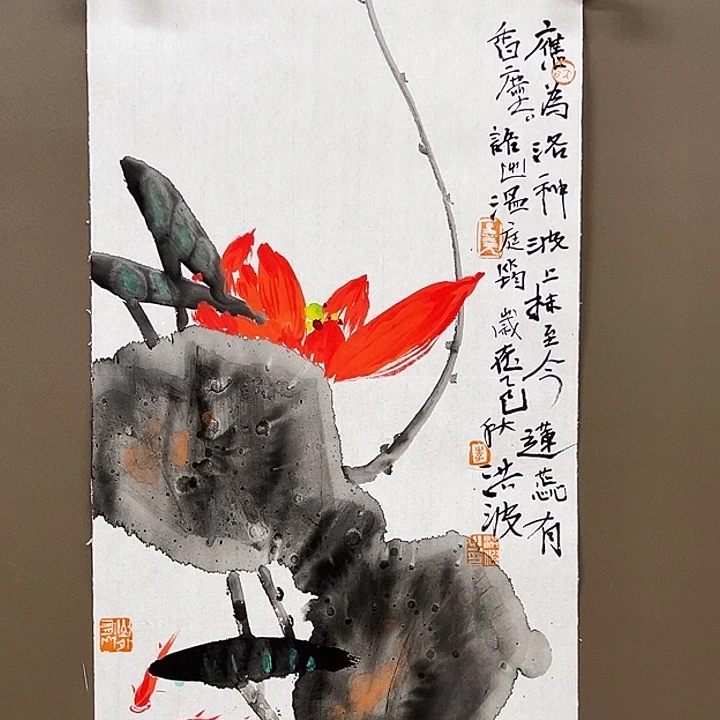 應為洛神波上袜至今蓮蕊有
香塵詩出溫庭筠歲在乙巳秋洪波